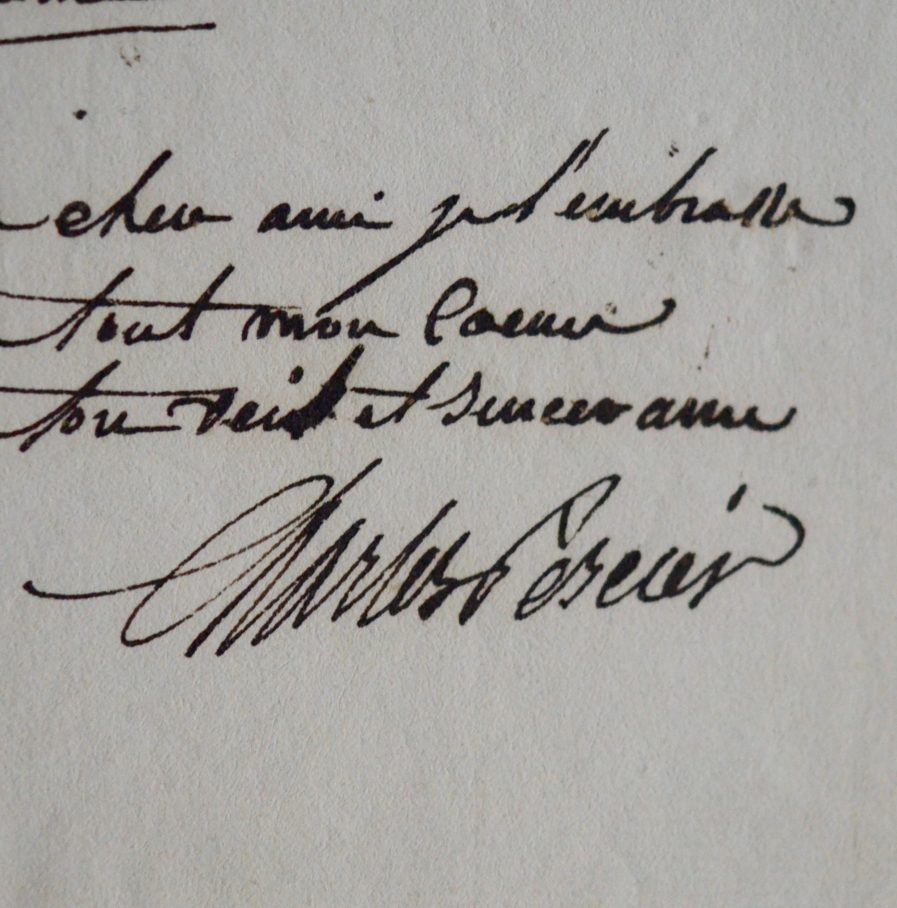 cher ami je t'embrasse
tout mon Coeur
ton et sincer ami
Charles Percier